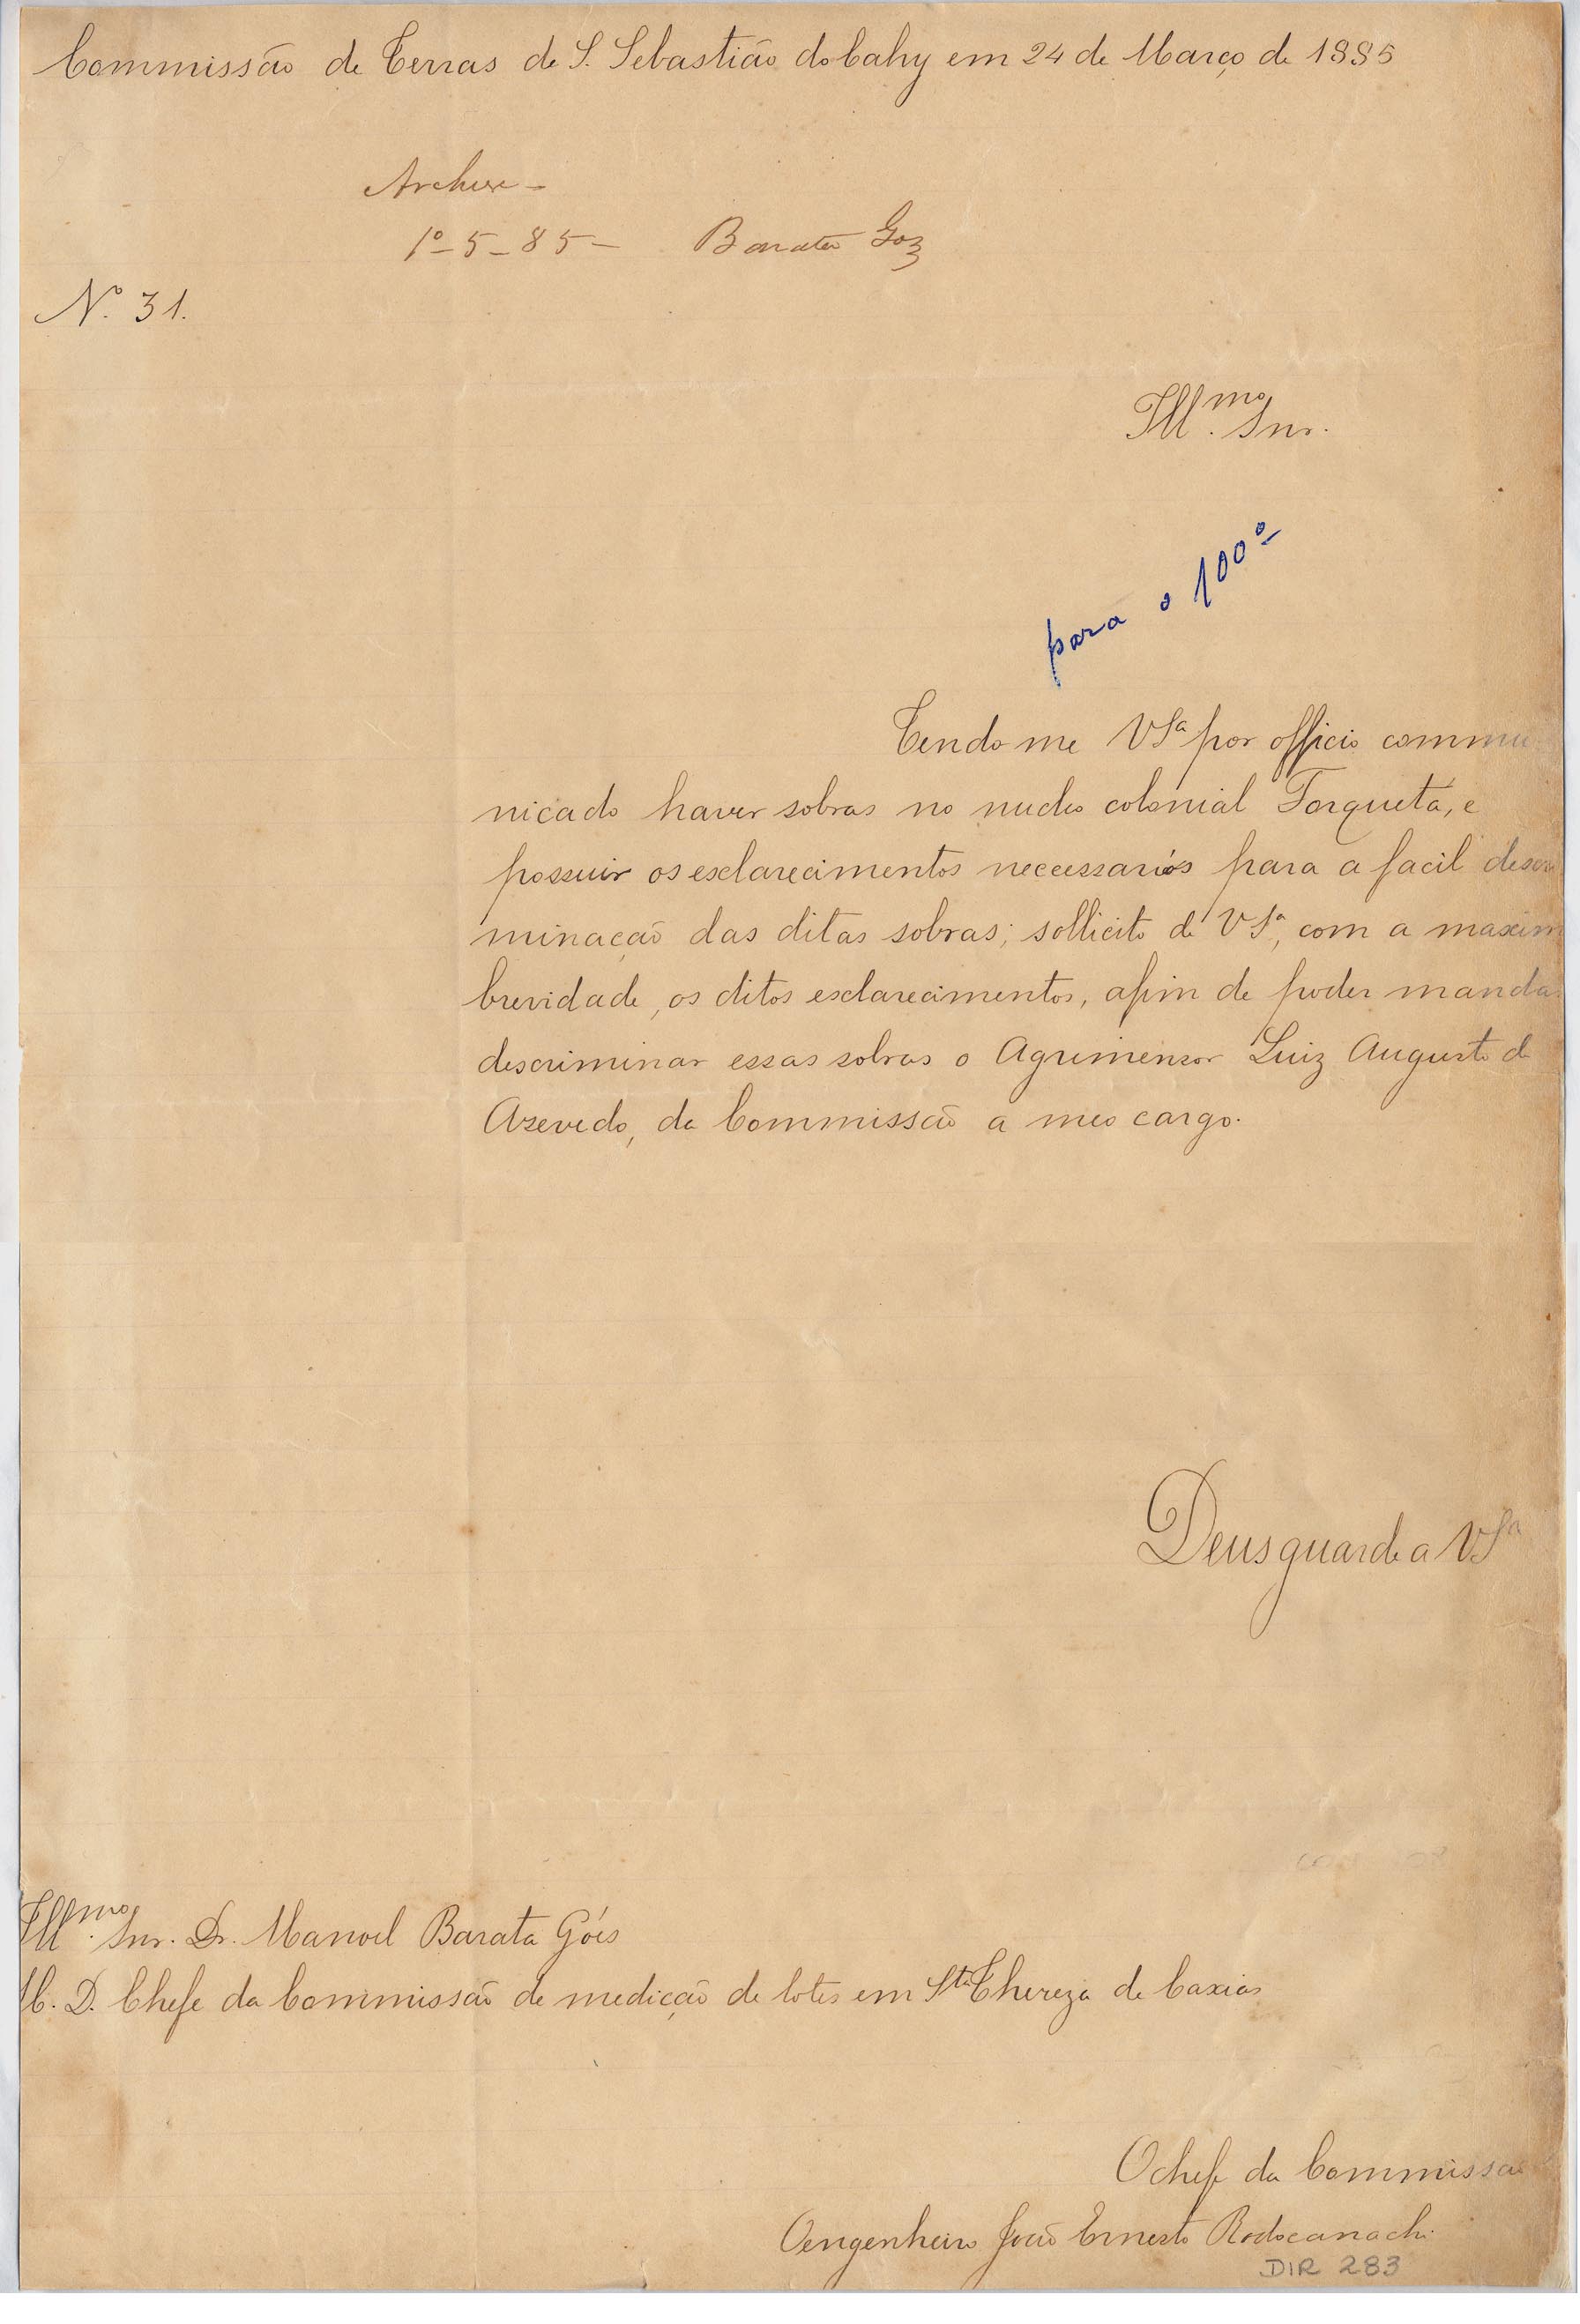 Commissão de Terras de S. Sebastião do Cahy em 24 de Março de 1885
Archive -
1º - 5 - 85 - Barata Goz
Nº 31.
Illmo. Snr.
para o 100º
Tendo me VSª por officio commu
nicado haver sobras no nucleo colonial Forqueta, e
possuir os esclarecimentos neccessarios para a facil descri
minação das ditas sobras; sollicito de VSª, com a maxim
brevidade, os ditos esclarecimentos, afim de poder manda
descriminar essas sobras o Agrimensor Luiz Augusto d
Azevedo, da Commissão a meo cargo.
Deus guarde a VSª
Illmo. Snr. Dr. Manoel Barata Góes
M. D. Chefe da Commissão de medicção de lotes em Sta Thereza de Caxias
O chefe da Commissão
O engenheiro João Ernesto Rodocanachi.
DIR 283